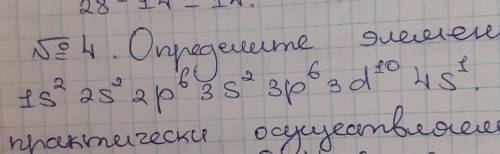 28 - 14 = 14.
№ 4. Определите элемен
1s² 2s² 2p⁶ 3s² 3p⁶ 3d¹⁰ 4s¹.
практически осуществляем